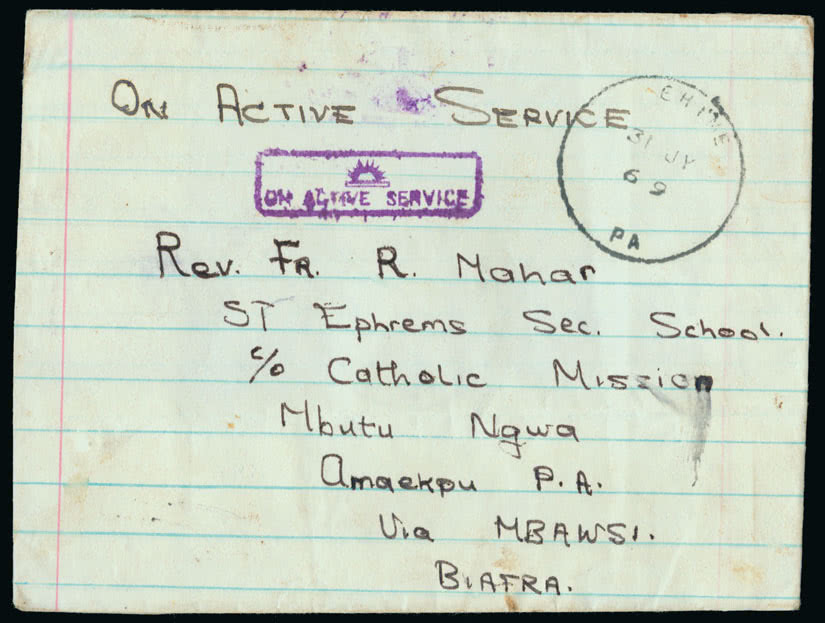 On Active Service
ON ACTIVE SERVICE
31 JY
69
PA
Rev. Fr. R. Mahar
ST Ephrems Sec. School.
c/o Catholic Mission
Mbutu Ngwa
Amaekpu P.A.
Via MBAWSI.
BIAFRA.